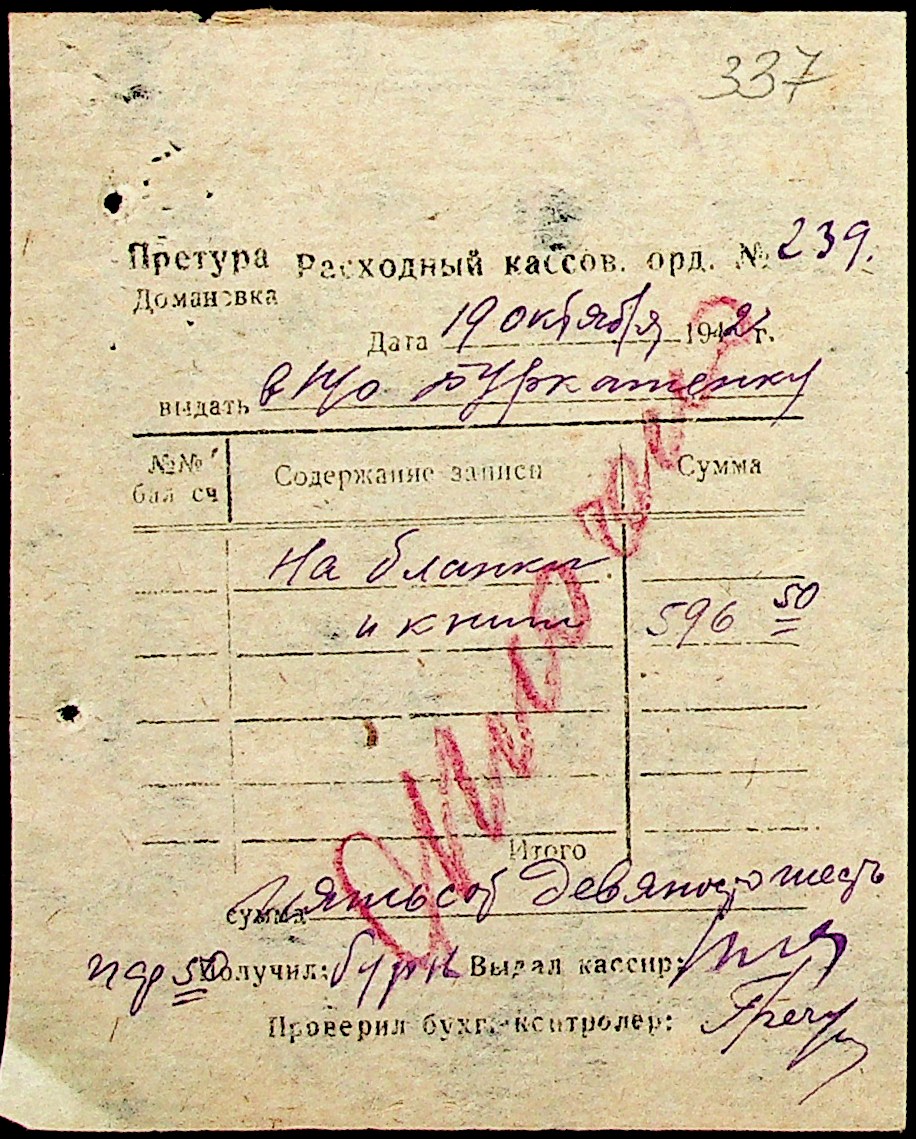 337
Претура Расходный кассов. орд. № 239.
Домановка
Дата 19 октября 1942 г.
выдать Буркатенку
№№ бал сч Содержание записи Сумма
На бланки
и книги 596 50
Итого
сумма Пятьсот девяносто шесть
50 Получил: Бурк Выдал кассир:
Проверил бухг.-контролер: